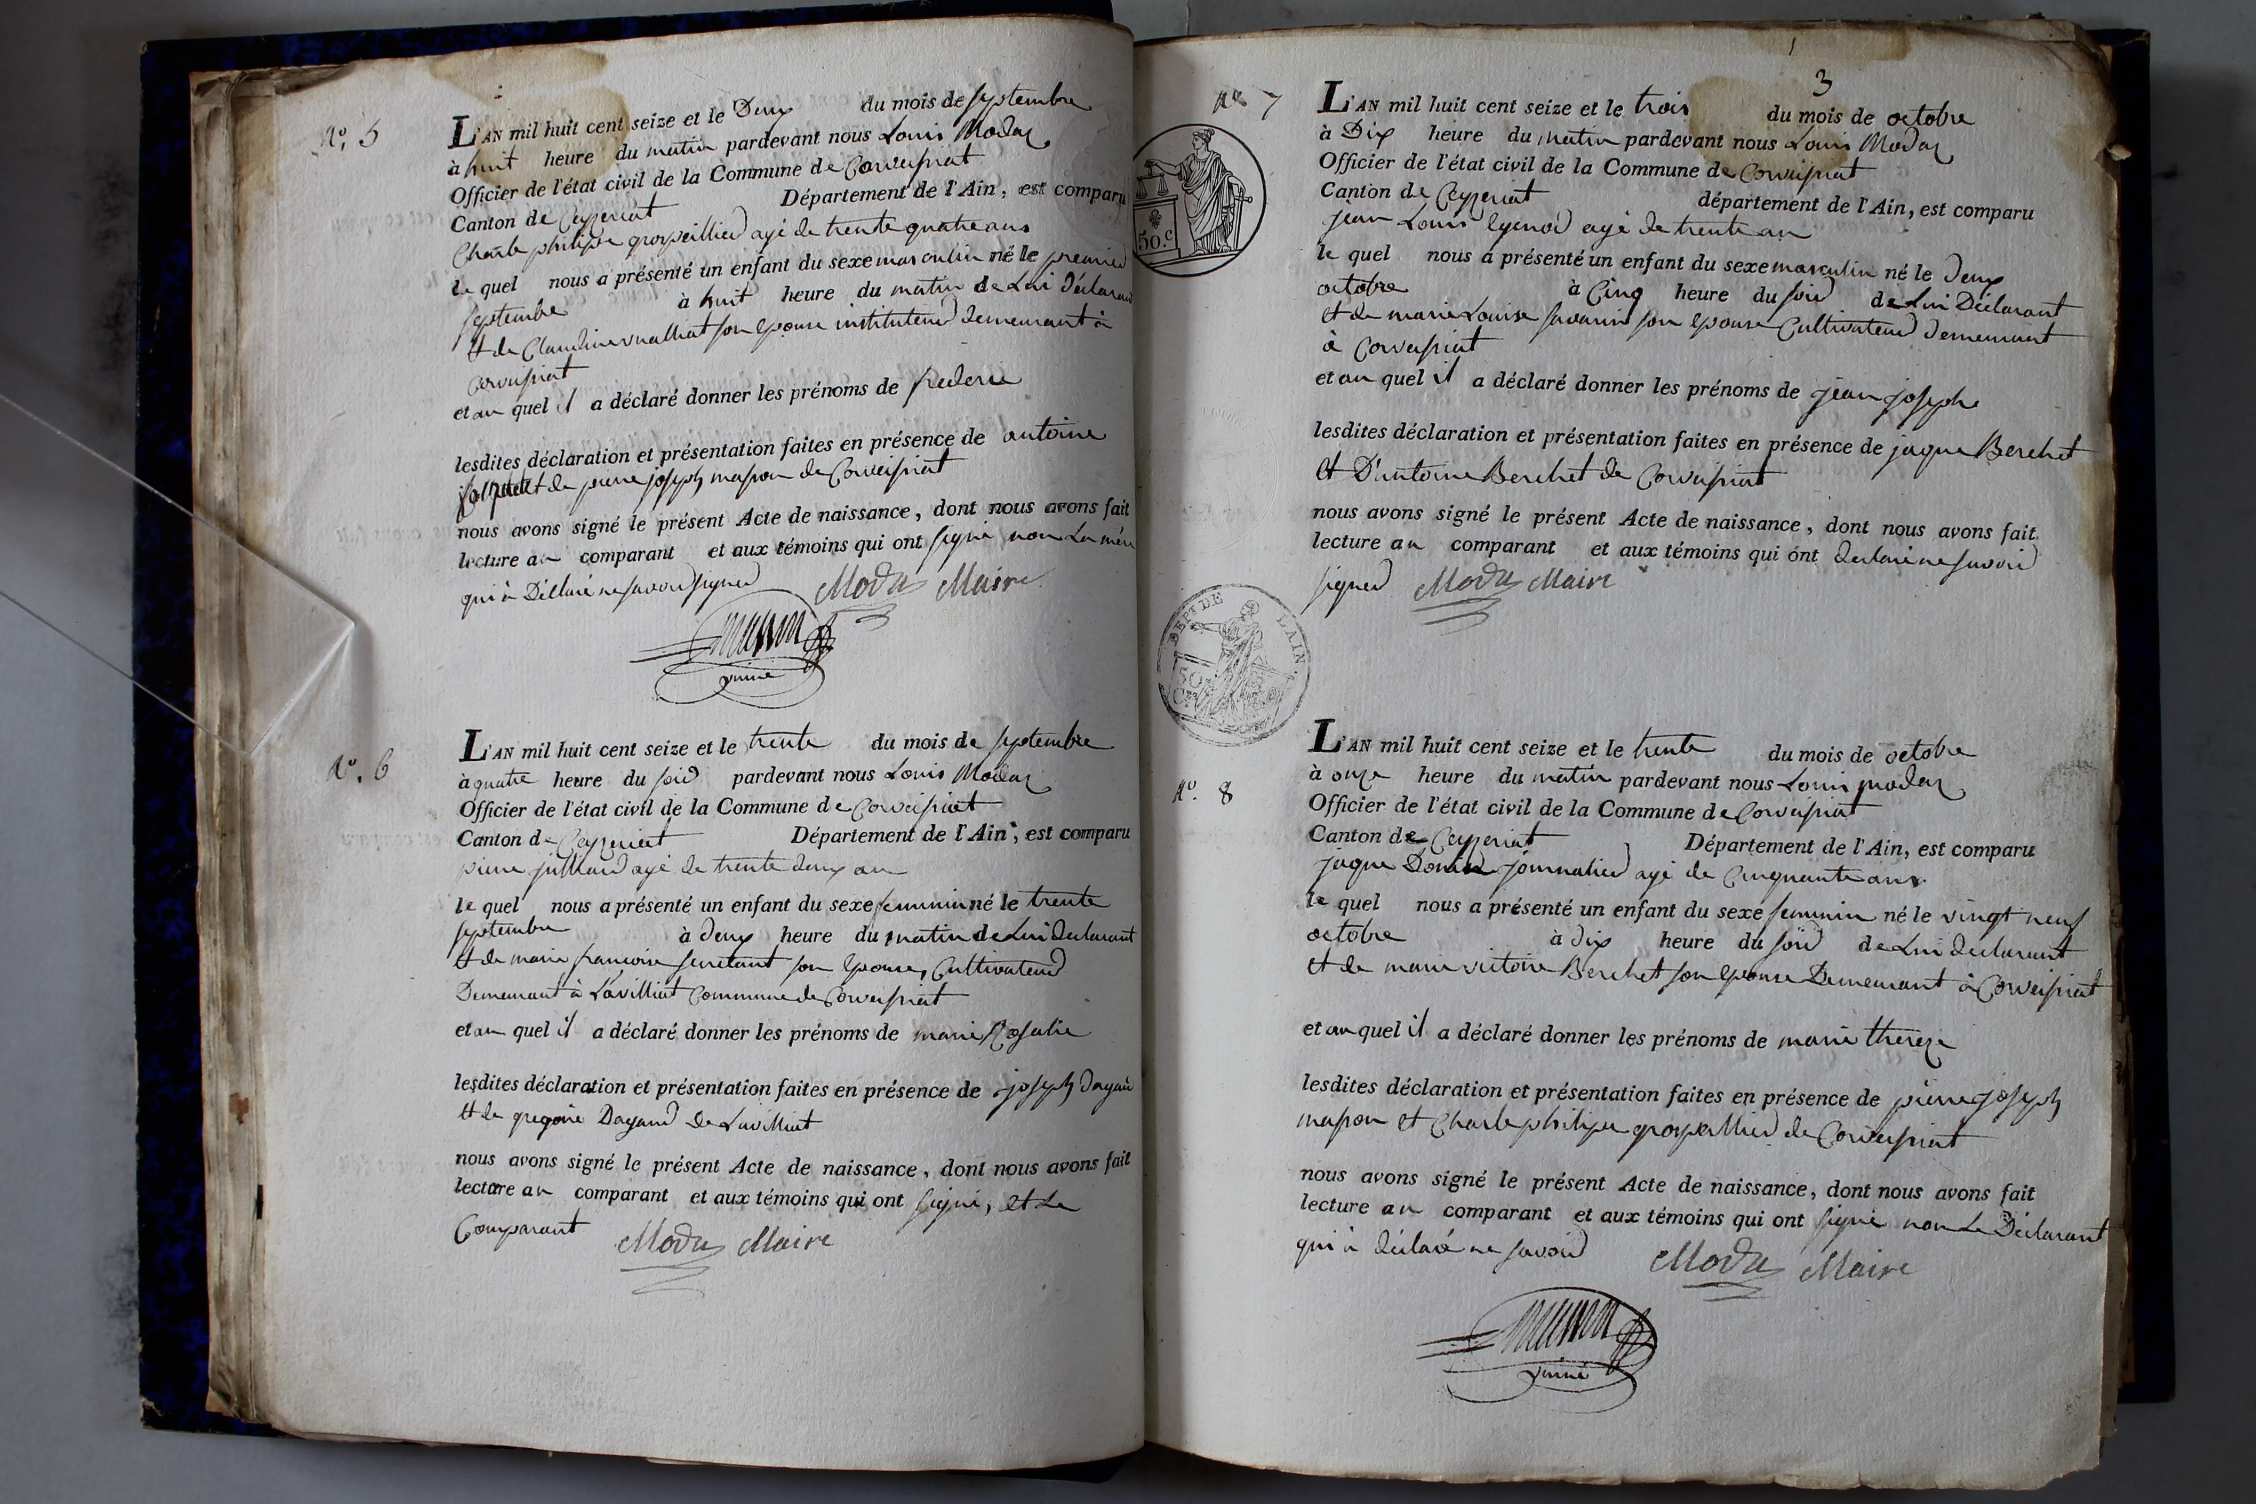 N.° 5
L'AN mil huit cent seize et le Deux du mois de septembre
à huit heure du matin pardevant nous Louis Modas
Officier de l'état civil de la Commune de Corveissiat
Canton de Ceyzeriat Département de l'Ain, est comparu
Charle philipe grospeillier agé de trente quatre ans
le quel nous a présenté un enfant du sexe masculin né le premier
septembre à huit heure du matin de Lui Déclarant
et de Claudine vualliat son epouse instituteur demeurant à
Corveissiat
et au quel il a déclaré donner les prénoms de frederic
lesdites déclaration et présentation faites en présence de antoine
et de pierre joseph masson de Corveissiat
nous avons signé le présent Acte de naissance, dont nous avons fait
lecture au comparant et aux témoins qui ont signé non
qui à Déclaré ne savoir signer Modas Maire
masson
N.° 6
L'AN mil huit cent seize et le trente du mois de septembre
à quatre heure du soir pardevant nous Louis Modas
Officier de l'état civil de la Commune de Corveissiat
Canton de Ceyzeriat Département de l'Ain, est comparu
pierre juilliard agé de trente deux an
le quel nous a présenté un enfant du sexe feminin né le trente
septembre à deux heure du matin de Lui declarant
et de marie francoise secretant son epouse, Cultivateur
Demeurant à Lavilliat Commune de Corveissiat
et au quel il a déclaré donner les prénoms de marie Rosalie
lesdites déclaration et présentation faites en présence de joseph
et de gregoire Dagand de Lavilliat
nous avons signé le présent Acte de naissance, dont nous avons fait
lecture au comparant et aux témoins qui ont signé, et Le
Comparant Modas Maire
3
N° 7
50.c
L'AN mil huit cent seize et le trois du mois de octobre
à Dix heure du matin pardevant nous Louis Modas
Officier de l'état civil de la Commune de Corveissiat
Canton de Ceyzeriat département de l'Ain, est comparu
jean Louis eynod agé de trente an
le quel nous a présenté un enfant du sexe masculin né le deux
octobre à Cinq heure du soir de Lui Déclarant
et de marie Louise savarin son epouse Cultivateur demeurant
à Corveissiat
et au quel il a déclaré donner les prénoms de jean joseph
lesdites déclaration et présentation faites en présence de jaque Berchet
et D'antoine Berchet de Corveissiat
nous avons signé le présent Acte de naissance, dont nous avons fait
lecture au comparant et aux témoins qui ont declaré ne savoir
signer Modas Maire
DEPT DE L'AIN
N°. 8
L'AN mil huit cent seize et le trente du mois de octobre
à onze heure du matin pardevant nous Louis modas
Officier de l'état civil de la Commune de Corveissiat
Canton de Ceyzeriat Département de l'Ain, est comparu
jaque journalier agé de Cinquante ans
le quel nous a présenté un enfant du sexe feminin né le vingt neuf
octobre à dix heure du soir de Lui declarant
et de marie victoire Berchet son epouse Demeurant à Corveissiat
et au quel il a déclaré donner les prénoms de marie thereze
lesdites déclaration et présentation faites en présence de pierre joseph
masson et Charle philipe grospellier de Corveissiat
nous avons signé le présent Acte de naissance, dont nous avons fait
lecture au comparant et aux témoins qui ont signé non Le Déclarant
qui à déclaré ne savoir Modas Maire
masson